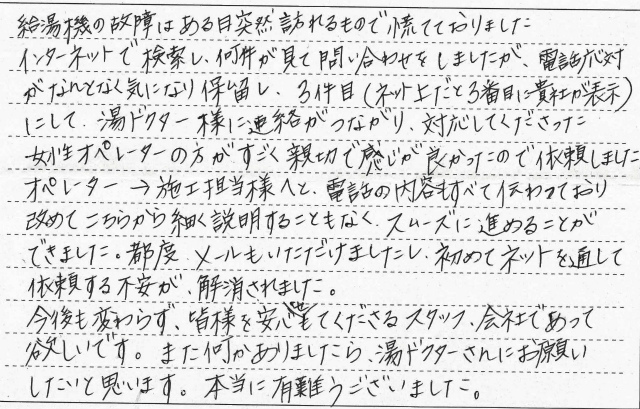 給湯機の故障はある日突然訪れるもので慌てておりました
インターネットで検索し、何件か見て問い合わせをしましたが、電話応対
がなんとなく気になり保留し、3件目(ネット上だと3番目に貴社が表示)
にして、湯ドクター様に連絡がつながり、対応してくださった
女性オペレーターの方がすごく親切で感じが良かったので依頼しました
オペレーター→施工担当様へと、電話の内容もすべて伝わっており
改めてこちらから細く説明することもなく、スムーズに進めることが
できました。都度メールもいただけましたし、初めてネットを通して
依頼する不安が、解消されました。
今後も変わらず、皆様を安心させてくださるスタッフ、会社であって
欲しいです。また何かありましたら、湯ドクターさんにお願い
したいと思います。本当に有難うございました。